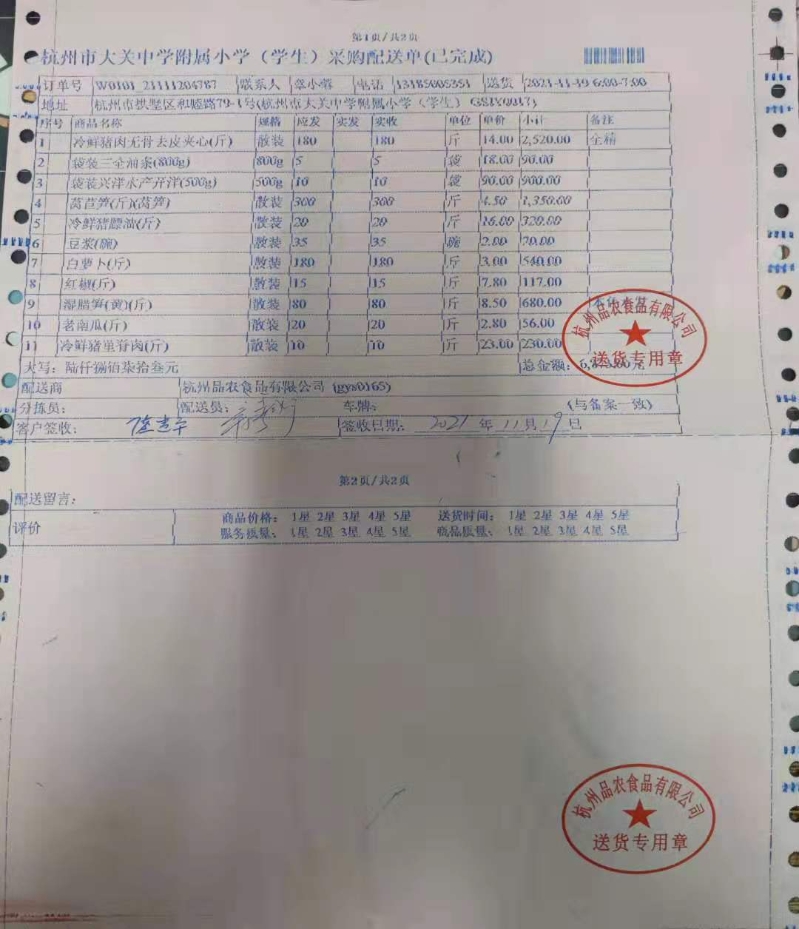 第1页/共2页
杭州市大关中学附属小学（学生）采购配送单(已完成)
订单号 W0101_21111204787 联系人 电话 13185005351 送货 2021-11-19 6:00-7:00
地址 杭州市拱墅区和睦路79-1号(杭州市大关中学附属小学（学生）
序号 商品名称 规格 应发 实发 实收 单位 单价 小计 备注
1 冷鲜猪肉无骨去皮夹心(斤) 散装 180 180 斤 14.00 2,520.00 全精
2 袋装三全油条(800g) 800g 5 5 袋 18.00 90.00
3 袋装兴洋水产开洋(500g) 500g 10 10 袋 90.00 900.00
4 莴苣笋(斤)(莴笋) 散装 300 300 斤 4.50 1,350.00
5 冷鲜猪膘油(斤) 散装 20 20 斤 16.00 320.00
6 豆浆(碗) 散装 35 35 碗 2.00 70.00
7 白萝卜(斤) 散装 180 180 斤 3.00 540.00
8 红椒(斤) 散装 15 15 斤 7.80 117.00
9 湿腊笋(黄)(斤) 散装 80 80 斤 8.50 680.00
10 老南瓜(斤) 散装 20 20 斤 2.80 56.00
11 冷鲜猪里脊肉(斤) 散装 10 10 斤 23.00 230.00
大写：陆仟捌佰柒拾叁元 总金额：6,873.00元
配送商 杭州品农食品有限公司 (gys0165)
分拣员： 配送员： 车牌： (与备案一致)
客户签收： 签收日期： 2021 年 11 月 19 日
杭州品农食品有限公司
送货专用章
第2页/共2页
配送留言：
评价 商品价格： 1星 2星 3星 4星 5星 送货时间： 1星 2星 3星 4星 5星
服务质量： 1星 2星 3星 4星 5星 商品质量： 1星 2星 3星 4星 5星
杭州品农食品有限公司
送货专用章